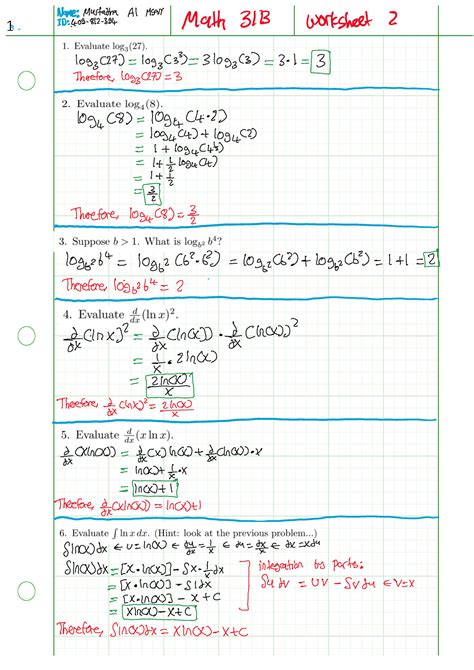 1.
Name: Murtadha Al
ID:
Math 31B
Worksheet 2
1. Evaluate log₃(27).
log₃(27) = log₃(3³) = 3log₃(3) = 3·1 = 3
Therefore, log₃(27) = 3
2. Evaluate log₄(8).
log₄(8) = log₄(4·2)
= log₄(4) + log₄(2)
= 1 + log₄(4^½)
= 1 + ½ log₄(4)
= 1 + ½
= 3/2
Therefore, log₄(8) = 3/2
3. Suppose b > 1. What is log_{b²} b⁴?
log_{b²} b⁴ = log_{b²}(b²·b²) = log_{b²}(b²) + log_{b²}(b²) = 1 + 1 = 2
Therefore, log_{b²} b⁴ = 2
4. Evaluate d/dx (ln x)².
∂/∂x (ln x)² = ∂/∂x (ln(x)) · ∂/∂x (ln(x))²
= 1/x · 2ln(x)
= 2ln(x)/x
Therefore, ∂/∂x (ln x)² = 2ln(x)/x
5. Evaluate d/dx (x ln x).
∂/∂x (xln(x)) = ∂/∂x (x) ln(x) + ∂/∂x (ln(x))·x
= ln(x) + 1/x · x
= ln(x) + 1
Therefore, ∂/∂x (xln(x)) = ln(x) + 1
6. Evaluate ∫ ln x dx. (Hint: look at the previous problem...)
∫ln(x)dx ← u = ln(x) ← du/dx = 1/x ← du = dx/x ← dx = xdu
∫ln(x)dx = [x·ln(x)] - ∫x·1/x dx
= [x·ln(x)] - ∫1dx
= [x·ln(x)] - x + C
= xln(x) - x + C
integration by parts:
∫u dv = uv - ∫v du ← v = x
Therefore, ∫ln(x)dx = xln(x) - x + C